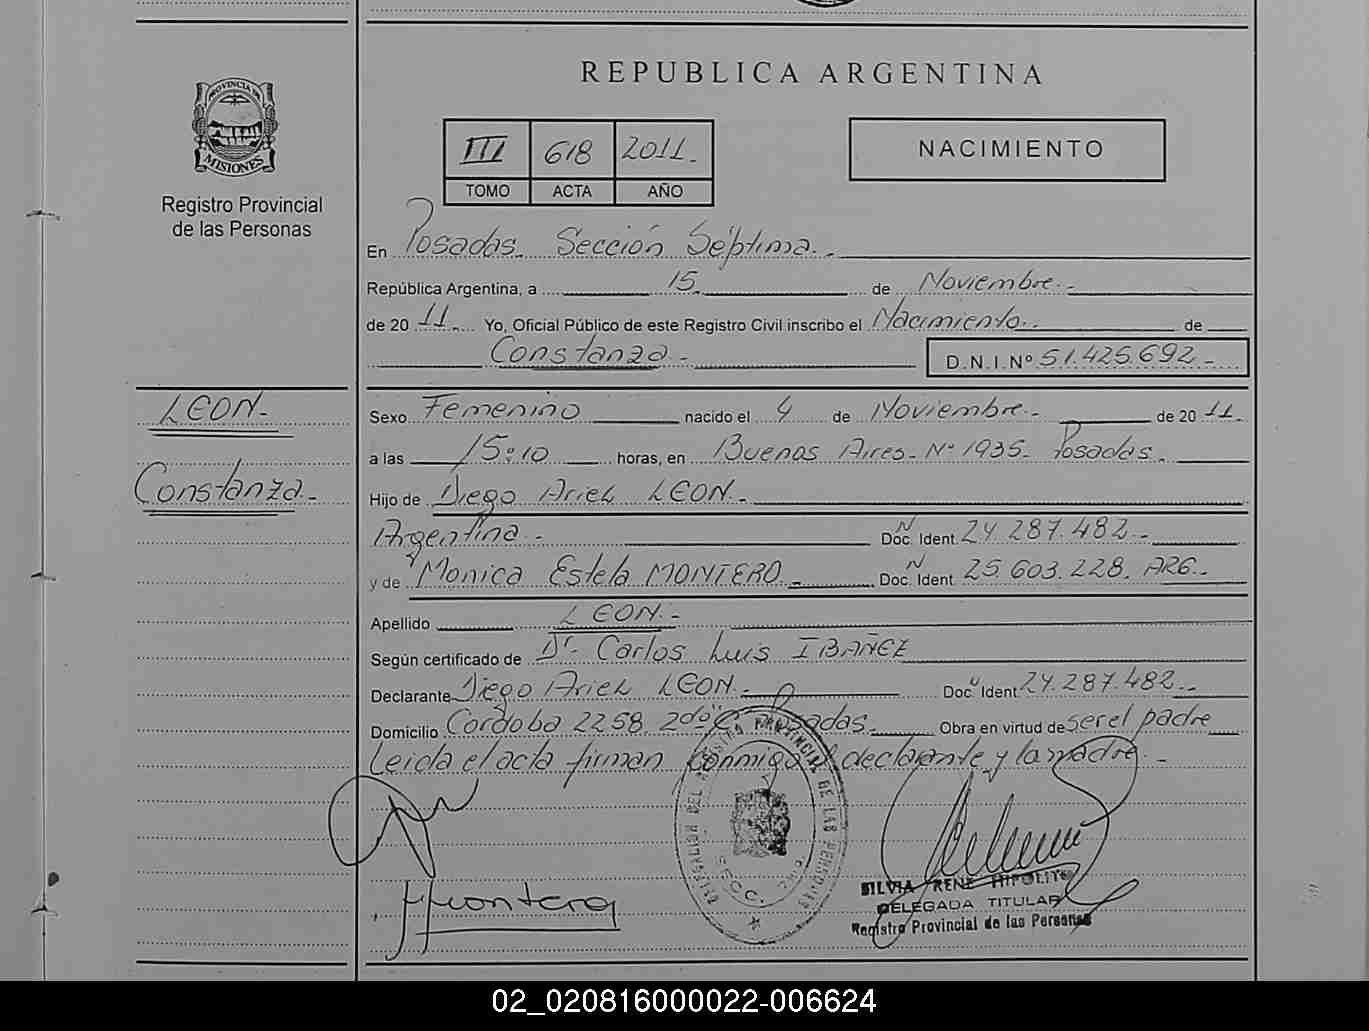 REPUBLICA ARGENTINA
PROVINCIA DE
MISIONES
Registro Provincial
de las Personas
III 618 2011.
TOMO ACTA AÑO
NACIMIENTO
En Posadas. Sección Séptima.-
República Argentina, a 15 de Noviembre.-
de 20 11.- Yo, Oficial Público de este Registro Civil inscribo el Nacimiento.- de
Constanza.- D.N.I.Nº 51.425.692.-
LEON.-
Constanza.-
Sexo Femenino nacido el 4 de Noviembre.- de 20 11.
a las 15:10 horas, en Buenos Aires. Nº 1935. Posadas.
Hijo de Diego Ariel LEON.-
Argentina.- Doc. Ident. 24.287.482.-
y de Monica Estela MONTERO.- Doc. Ident. 25.603.228. ARG.-
Apellido LEON.-
Según certificado de Dr. Carlos Luis IBAÑEZ
Declarante Diego Ariel LEON.- Doc. Ident 24.287.482.-
Domicilio Córdoba 2258. 2do "C" Posadas. Obra en virtud de ser el padre
Leida el acta firman conmigo el declarante y la madre.-
DELEGACION DEL REGISTRO PROVINCIAL DE LAS PERSONAS
SECC.
Montero
SILVIA RENE HIPOLITO
DELEGADA TITULAR
Registro Provincial de las Personas
02_020816000022-006624